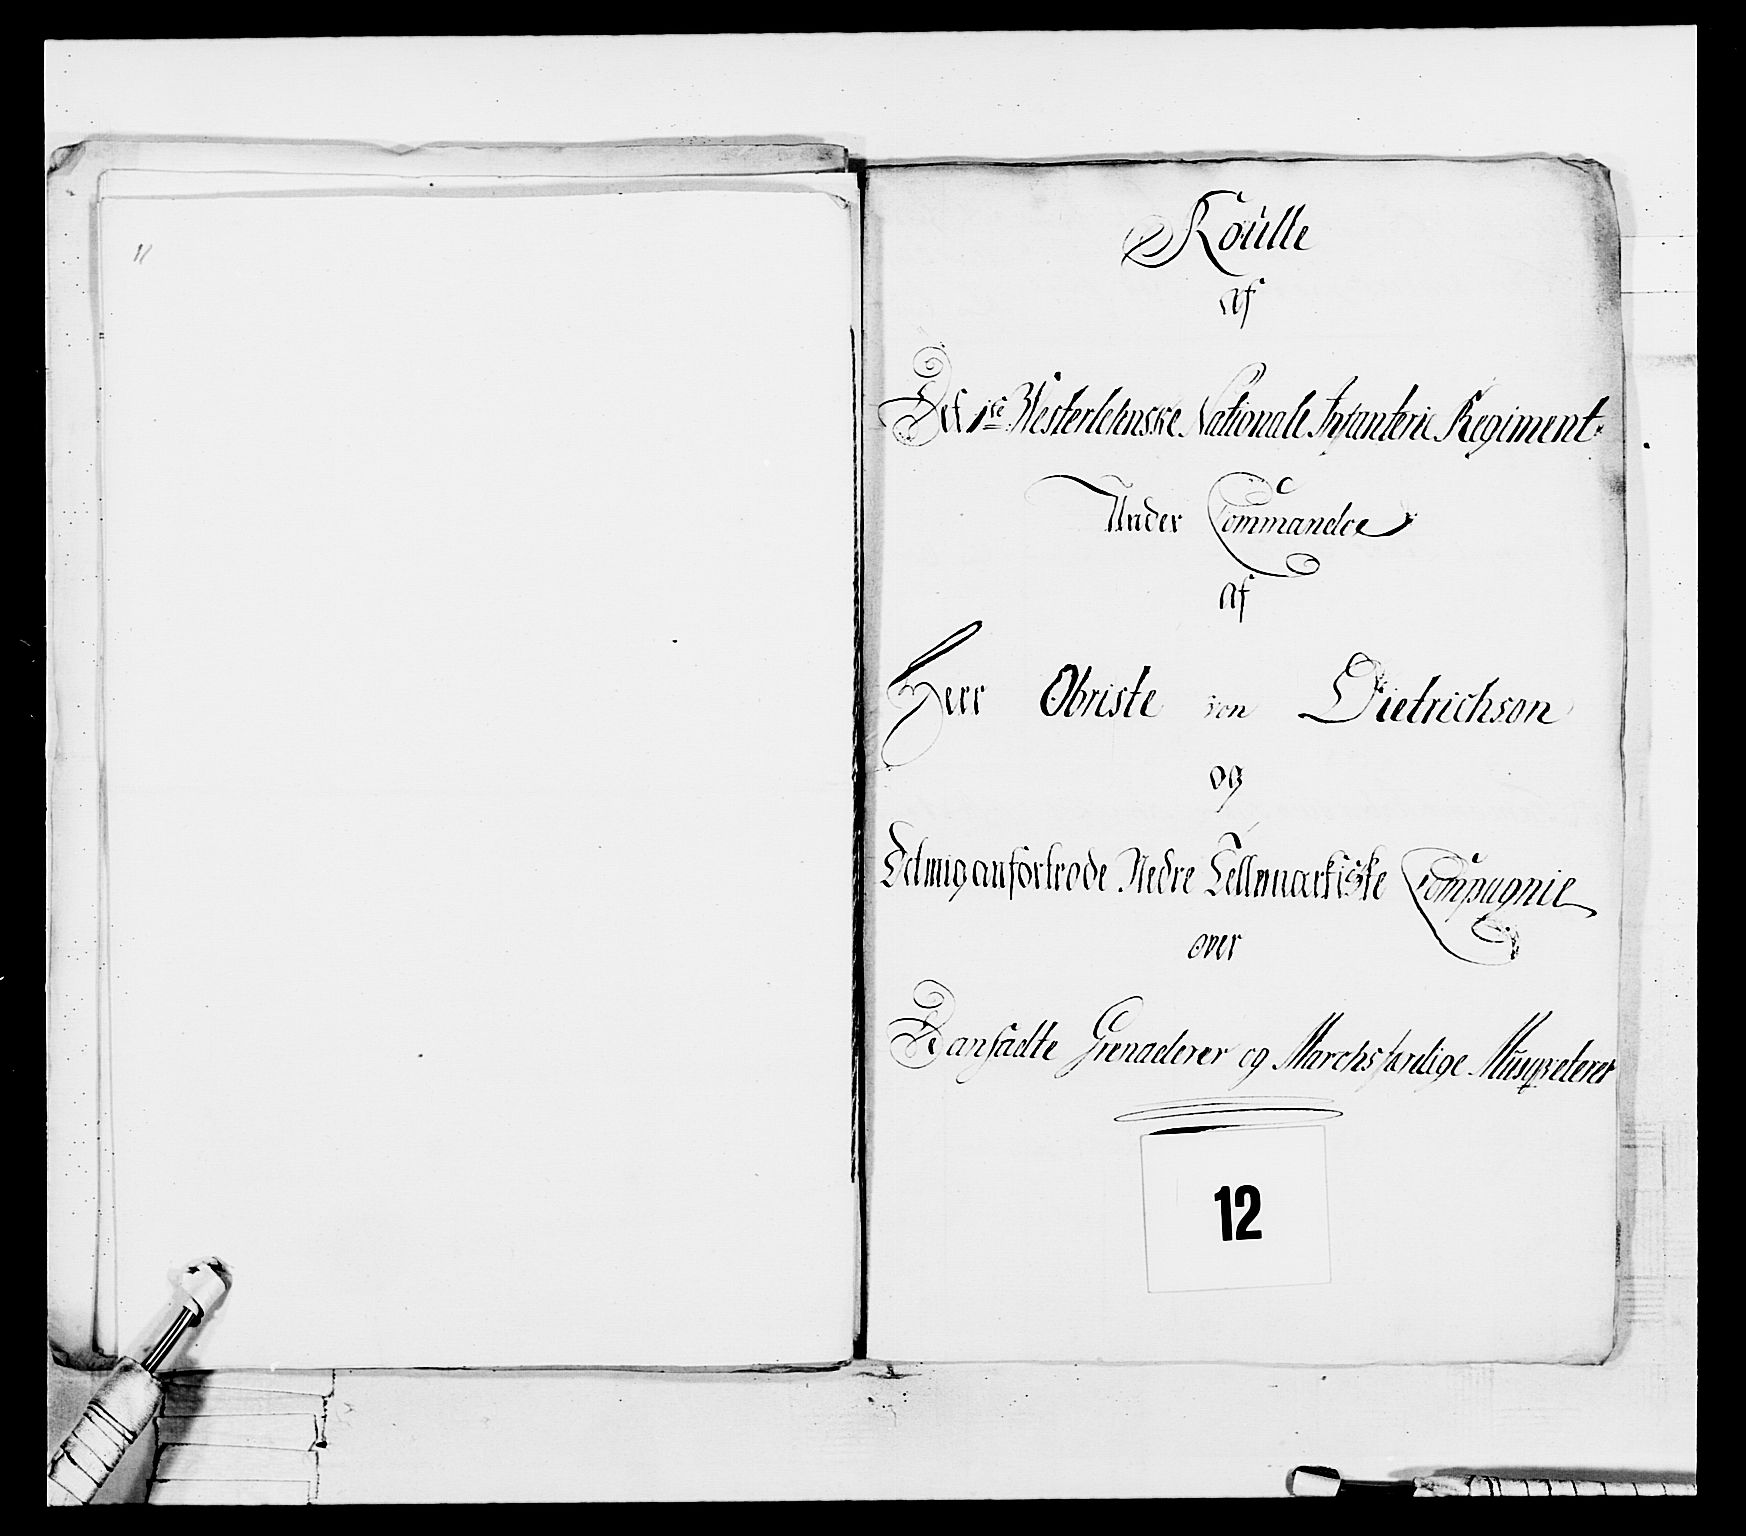 11
Roülle
af
Det 1ste Westerlehnske Nationale Infanterie Regiment
Under Commandoe
af
Herr Obriste von Dietrichson
og
Det mig anfortrode Nedre Tellemarkiske Compagnie
over
Ansadte Grenaderer og Marchsferdige Musqveterer
12